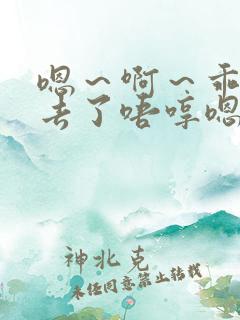 嗯～啊～乖
丢了唔哼嗯
神北克
未经同意禁止转载